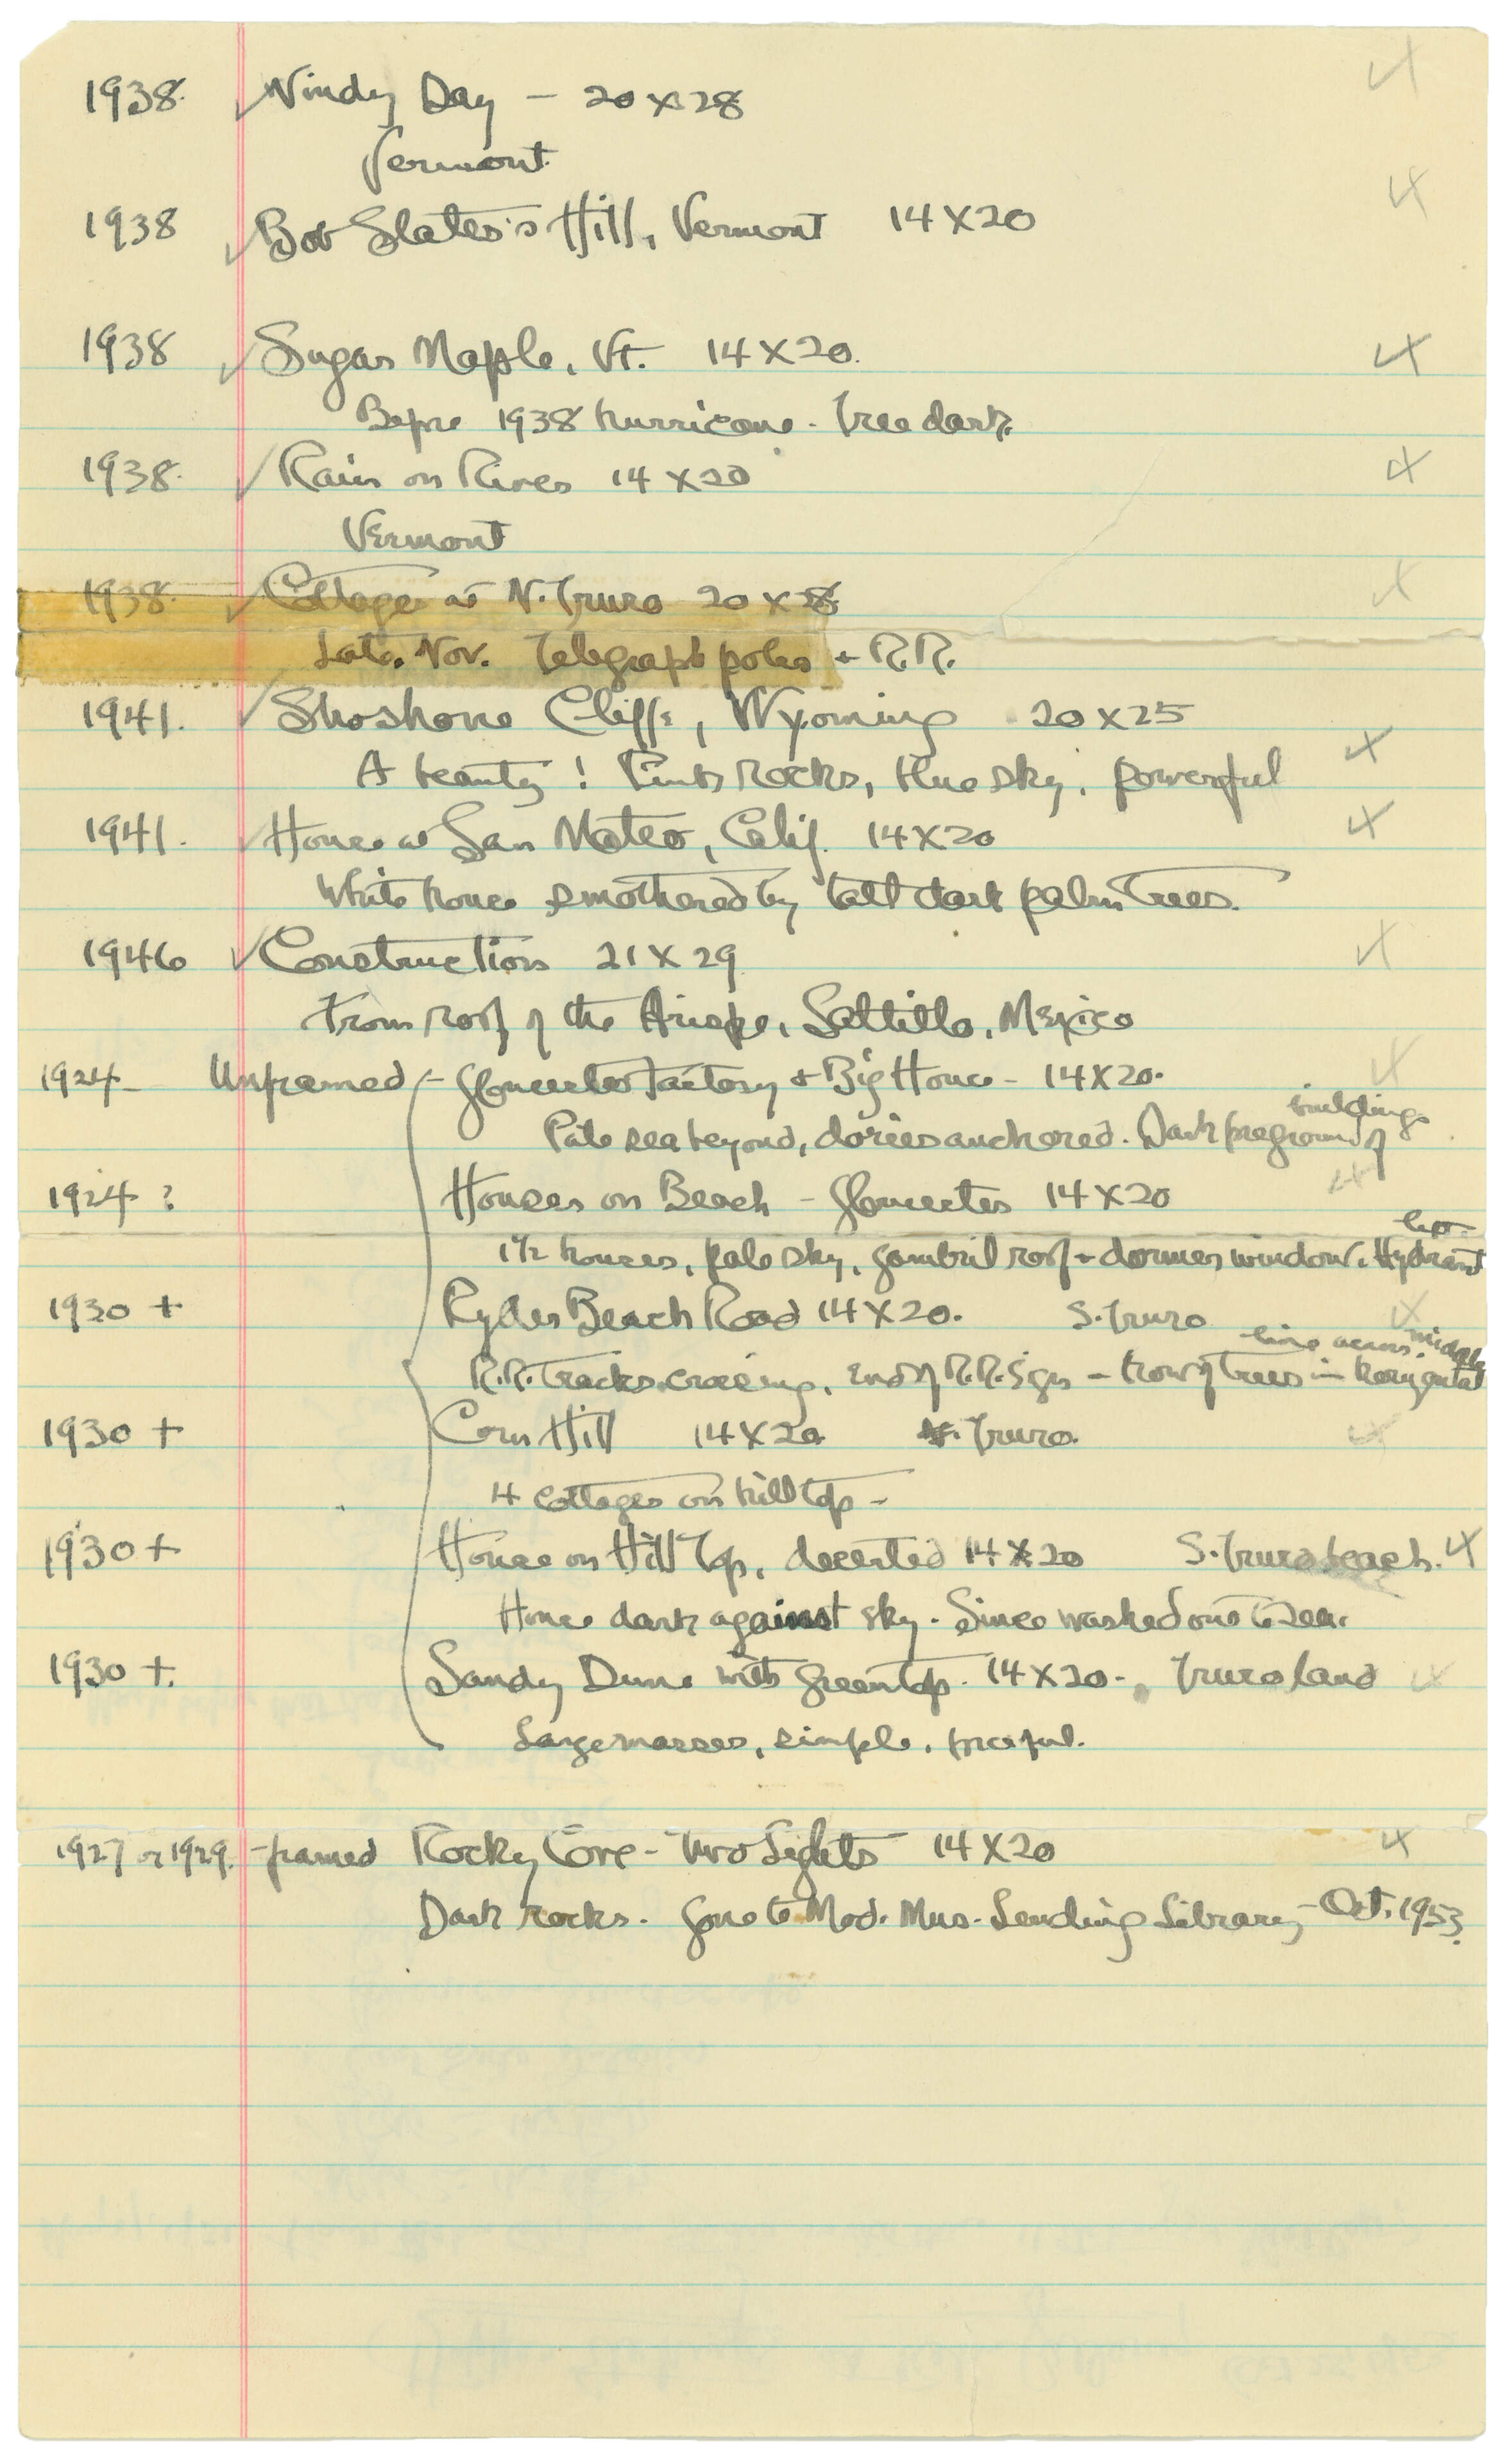 1938. ✓ Windy Day – 20 x 28 4
Vermont
1938 ✓ Bob Slater's Hill, Vermont 14 X 20 4
1938 ✓ Sugar Maple, Vt. 14 X 20. 4
Before 1938 hurricane. Tree dark.
1938. ✓ Rain on River 14 X 20 4
Vermont
1938. ✓ Cottages at N. Truro 20 x 4
Late Nov. Telegraph poles + R.R.
1941. ✓ Shoshone Cliffs, Wyoming 20 x 25
A beauty! Pink rocks, blue sky, powerful 4
1941. ✓ House at San Mateo, Calif. 14 X 20 4
White house smothered by tall dark palm trees.
1946 ✓ Construction 21 X 29 4
From roof of the Arizpe, Saltillo, Mexico
1924 – Unframed – Gloucester Factory + Big House – 14 X 20. 4
Pale sea beyond, dories anchored. Dark foreground of buildings
1924 ? Houses on Beach – Gloucester 14 X 20 4
1 1/2 houses, pale sky, gambril roof + dormer window. Hydrant
1930 + Ryder Beach Road 14 X 20. S. Truro 4
R.R. Tracks crossing, End of R.R. Sign – row of trees in horizontal line across middle
1930 + Corn Hill 14 X 20 Truro. 4
4 cottages on hill top –
1930 + House on Hill Top, deserted 14 X 20 S. Truro beach. 4
House dark against sky. Since washed out to sea.
1930 +. Sandy Dune with green top. 14 X 20 – Truro land 4
Large masses, simple, forceful.
1927 or 1929. – framed Rocky Cove – Two Lights 14 X 20 4
Dark rocks. Gone to Mod. Mus. Lending Library – Oct. 1953.